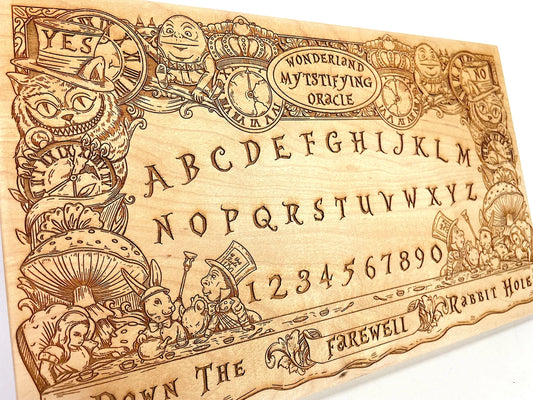 YES
WONDERLAND
MYTSTIFYING
ORACLE
NO
A B C D E F G H I J K L M
N O P Q R S T U V W X Y Z
1 2 3 4 5 6 7 8 9 0
DOWN THE FAREWELL RABBIT HOLE